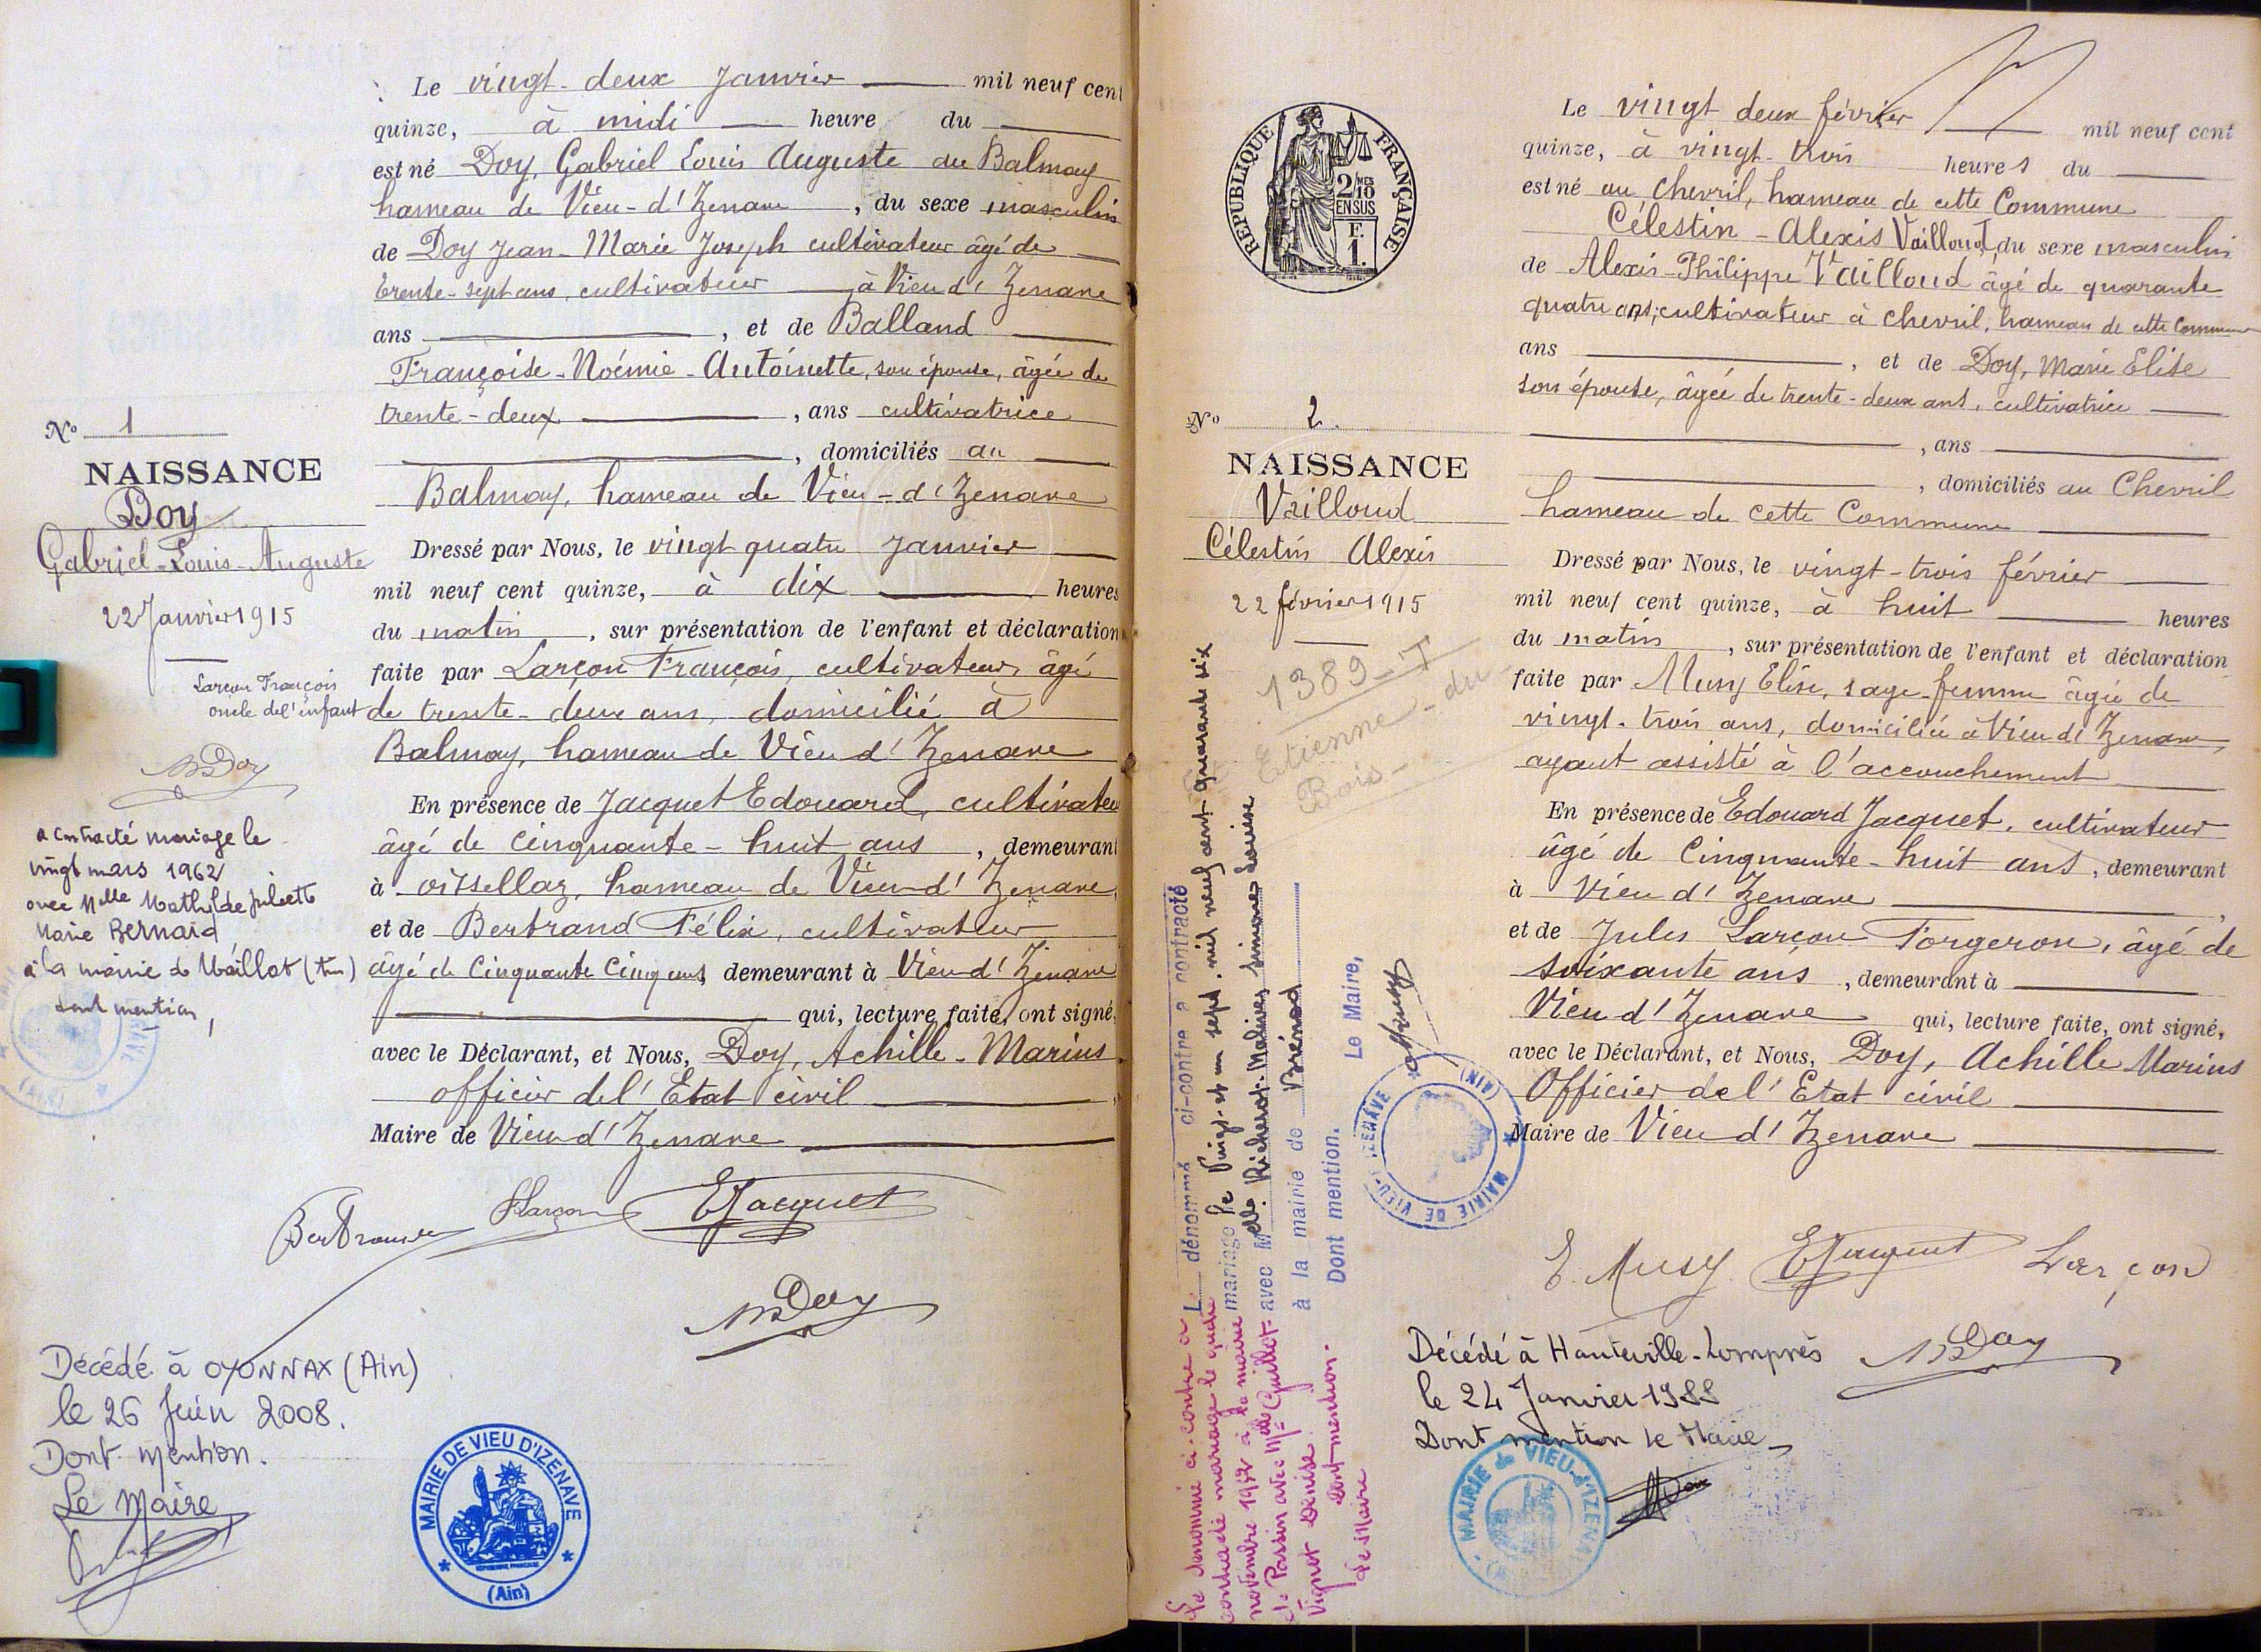 Le vingt-deux Janvier mil neuf cent
quinze, à midi heure du
est né Doy, Gabriel Louis Auguste au Balmay
hameau de Vieu-d'Izenave, du sexe masculin
de Doy Jean-Marie Joseph cultivateur âgé de
trente-sept ans, cultivateur à Vieu d'Izenave
ans, et de Balland
Françoise-Noémie-Antoinette, son épouse, âgée de
trente-deux, ans cultivatrice
, domiciliés au
Balmay, hameau de Vieu-d'Izenave
Dressé par Nous, le vingt quatre Janvier
mil neuf cent quinze, à dix heures
du matin, sur présentation de l'enfant et déclaration
faite par Larçon François, cultivateur, âgé
de trente-deux ans, domicilié à
Balmay, hameau de Vieu d'Izenave
En présence de Jacquet Edouard, cultivateu
âgé de cinquante-huit ans, demeurant
à oisellaz, hameau de Vieu d'Izenave,
et de Bertrand Félix, cultivateur
âgé de cinquante cinq ans, demeurant à Vieu d'Izenave
qui, lecture faite, ont signé,
avec le Déclarant, et Nous, Doy, Achille-Marius
officier de l'Etat civil
Maire de Vieu d'Izenave
Bertrand FLarçon EJacquet
Doy
No 1
NAISSANCE
Doy
Gabriel-Louis-Auguste
22 Janvier 1915
Larçon François
oncle de l'enfant
Doy
a contracté mariage le
vingt mars 1962
avec Melle Mathilde Juliette
Marie Bernard
à la mairie de Maillat (Ain)
dont mention,
(Ain)
Décédé à OYONNAX (Ain)
le 26 Juin 2008.
Dont mention.
Le Maire
MAIRIE DE VIEU D'IZENAVE
(Ain)
RÉPUBLIQUE FRANÇAISE
2/10 MES
EN SUS
F.
1.
No 2.
NAISSANCE
Vailloud
Célestin Alexis
22 février 1915
1389-T
Etienne-du-
Bois-
Le vingt deux février mil neuf cent
quinze, à vingt-trois heures du
est né au Chevril, hameau de cette Commune
Célestin-Alexis Vailloud, du sexe masculin
de Alexis-Philippe Vailloud âgé de quarante
quatre ans, cultivateur à Chevril, hameau de cette Commune
ans, et de Doy, Marie Elise
son épouse, âgée de trente-deux ans, cultivatrice
, ans
, domiciliés au Chevril
hameau de cette Commune
Dressé par Nous, le vingt-trois février
mil neuf cent quinze, à huit heures
du matin, sur présentation de l'enfant et déclaration
faite par Musy Elise, sage-femme âgée de
vingt-trois ans, domiciliée à Vieu d'Izenave,
ayant assisté à l'accouchement
En présence de Edouard Jacquet, cultivateur
âgé de Cinquante-huit ans, demeurant
à Vieu d'Izenave,
et de Jules Larçon Forgeron, âgé de
soixante ans, demeurant à
Vieu d'Izenave qui, lecture faite, ont signé,
avec le Déclarant, et Nous, Doy, Achille Marius
Officier de l'Etat civil
Maire de Vieu d'Izenave
E. Musy EJacquet Larçon
Doy
L dénommé ci-contre a contracté
mariage le vingt et un sept. mil neuf cent quarante six
avec Melle Richerot-Molines Simone Louise
à la mairie de Brénod
Dont mention.
Le Maire,
MAIRIE DE VIEU-D'IZENAVE (AIN)
Le dénommé ci-contre a
contracté mariage le quatre
novembre 1952 à la mairie
de Passin avec Melle Guillot-
Vignot Denise.
Dont mention.
Le Maire
Décédé à Hauteville-Lompnès
le 24 Janvier 1988
Dont mention Le Maire
MAIRIE de VIEU-d'IZENAVE